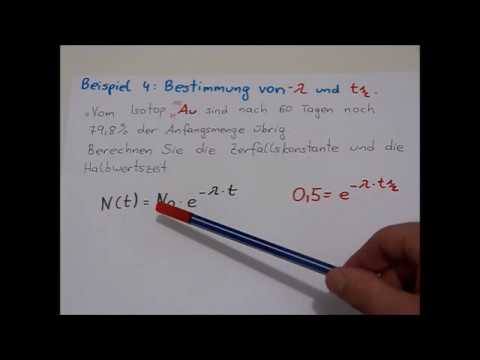 Beispiel 4: Bestimmung von λ und t½.
• Vom Isotop Au sind nach 60 Tagen noch
79,8% der Anfangsmenge übrig
Berechnen Sie die Zerfallskonstante und die
Halbwertszeit
N(t) = N₀ · e^(-λ·t) 0,5 = e^(-λ·t½)